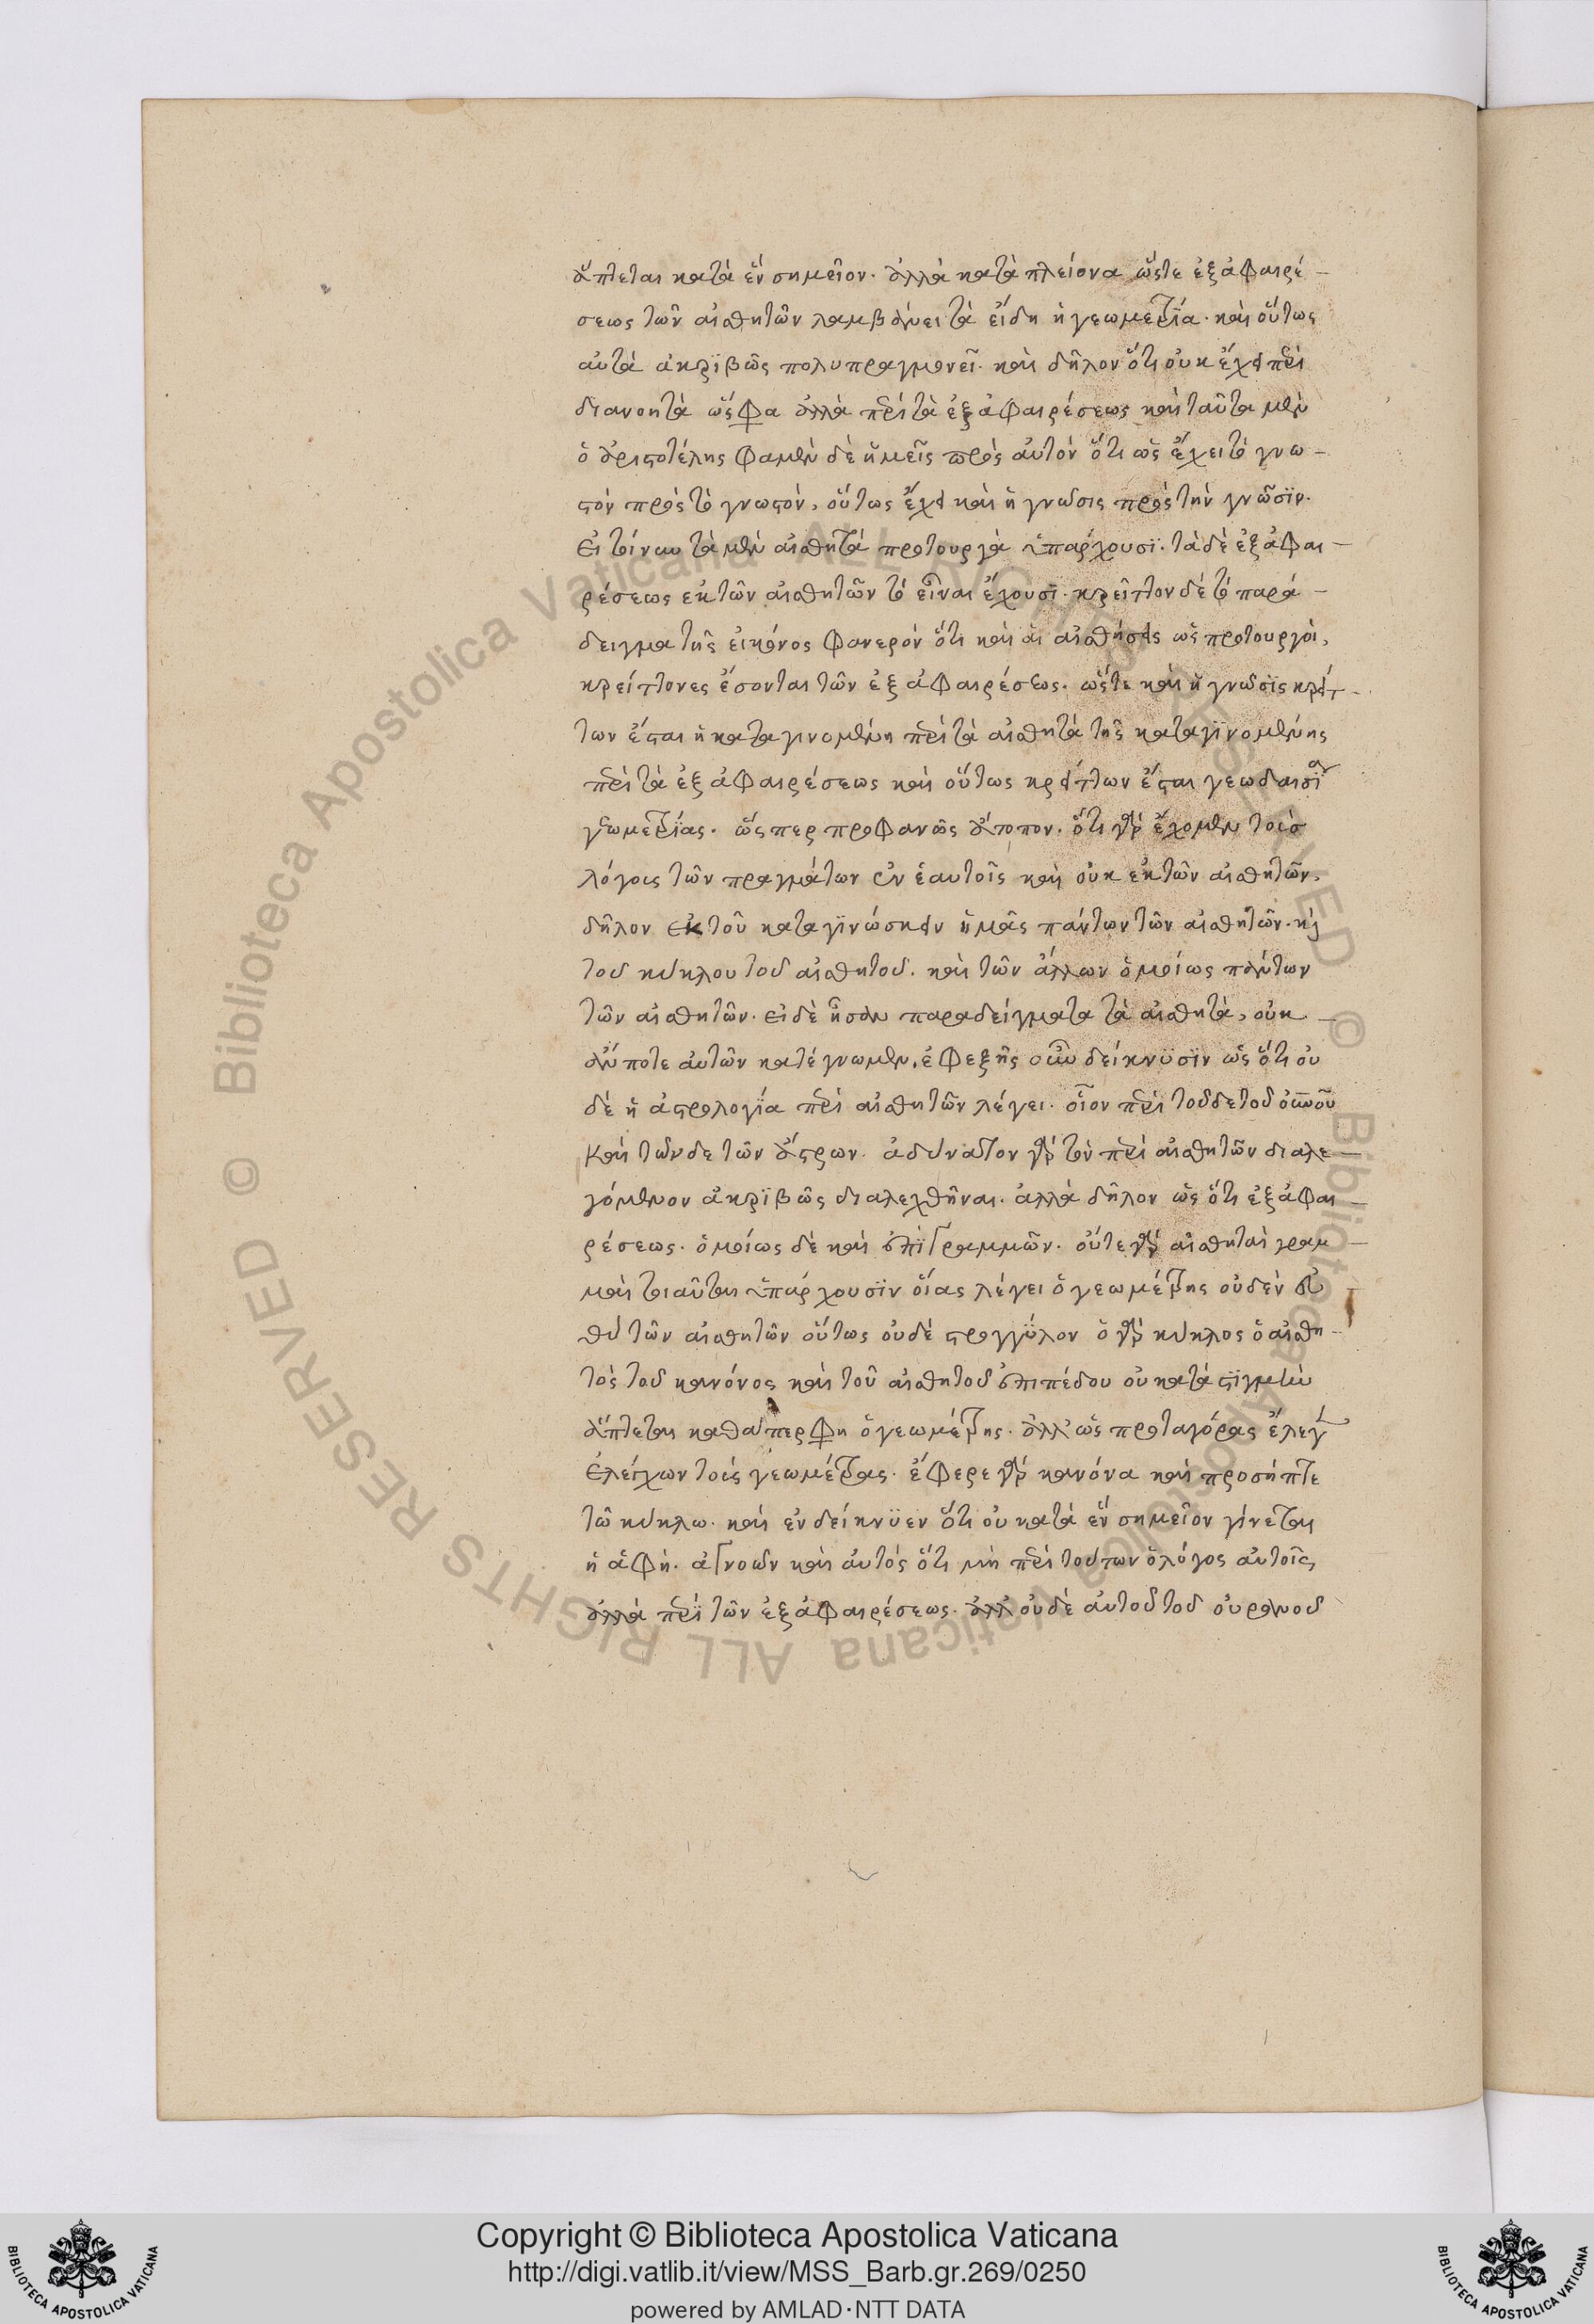 ἅπτεται κατὰ ἓν σημεῖον. ἀλλὰ κατὰ πλείονα ὥστε ἐξ ἀφαιρέ-
σεως τῶν αἰσθητῶν λαμβάνει τὰ εἴδη ἡ γεωμετρΐα. καὶ οὕτως
αὐτὰ ἀκρϊβῶς πολυπραγμονεῖ. καὶ δῆλον ὅτι οὐκ ἔχει περὶ
διανοητὰ ὥς φα ἀλλὰ περὶ τὰ ἐξ ἀφαιρέσεως καὶ ταῦτα μὲν
ὁ ἀριστοτέλης φαμὲν δὲ ἡμεῖς πρὸς αὐτὸν ὅτι ὡς ἔχει τὸ γνω-
στὸν πρὸς τὸ γνωστόν, οὕτως ἔχει καὶ ἡ γνῶσις πρὸς τὴν γνῶσϊν.
εἰ τοίνυν τὰ μὲν αἰσθητὰ πρωτουργὰ ὑπάρχουσϊ. τὰ δὲ ἐξ ἀφαι-
ρέσεως ἐκ τῶν αἰσθητῶν τὸ εἶναι ἔχουσϊ. κρεῖττον δὲ τὸ παρά-
δειγμα τῆς εἰκόνος φανερὸν ὅτι καὶ αἱ αἰσθήσεις ὡς πρωτουργοὶ,
κρείττονες ἔσονται τῶν ἐξ ἀφαιρέσεως. ὥστε καὶ ἡ γνῶσϊς κρείτ-
των ἔσται ἡ καταγινομένη περὶ τὰ αἰσθητὰ τῆς καταγϊνομένης
περὶ τὰ ἐξ ἀφαιρέσεως καὶ οὕτως κρείττων ἔσται γεωδαισϊα
γεωμετρΐας. ὥσπερ προφανῶς ἄτοπον. ὅτι γὰρ ἔχομεν τοὺσ
λόγους τῶν πραγμάτων ἐν ἑαυτοῖς καὶ οὐκ ἐκ τῶν αἰσθητῶν,
δῆλον ἐκ τοῦ καταγϊνώσκειν ἡμᾶς πάντων τῶν αἰσθητῶν. καὶ
τοῦ κύκλου τοῦ αἰσθητοῦ. καὶ τῶν ἄλλων ὁμοίως πάντων
τῶν αἰσθητῶν. εἰ δὲ ἦσαν παραδείγματα τὰ αἰσθητὰ, οὐκ
ἄν ποτε αὐτῶν κατέγνωμεν. ἐφεξῆς οὖν δείκνυσϊν ὡς ὅτι οὐ
δὲ ἡ ἀστρολογΐα περὶ αἰσθητῶν λέγει. οἷον περὶ τοῦδε τοῦ οὐρανοῦ
καὶ τῶνδε τῶν ἄστρων. ἀδύνατον γὰρ τὸν περὶ αἰσθητῶν διαλε-
γόμενον ἀκρϊβῶς διαλεχθῆναι. ἀλλὰ δῆλον ὡς ὅτι ἐξ ἀφαι-
ρέσεως. ὁμοίως δὲ καὶ ἐπὶ γραμμῶν. οὔτε γὰρ αἰσθηταὶ γραμ-
μαὶ τοιαῦται ὑπάρχουσϊν οἵας λέγει ὁ γεωμέτρης οὐδὲν εὐ
θὺ τῶν αἰσθητῶν οὕτως οὐδὲ στρογγύλον ὁ γὰρ κύκλος ὁ αἰσθη-
τὸς τοῦ κανόνος καὶ τοῦ αἰσθητοῦ ἐπιπέδου οὐ κατὰ στϊγμὴν
ἅπτεται καθάπερ φη ὁ γεωμέτρης. ἀλλ' ὡς πρωταγόρας ἔλεγεν
ἐλέγχων τοὺς γεωμέτρας. ἔφερε γὰρ κανόνα καὶ προσήπτε
τῶ κύκλω. καὶ ἐνδείκνυεν ὅτι οὐ κατὰ ἓν σημεῖον γίνεται
ἡ ἁφή. ἀγνοῶν καὶ αὐτὸς ὅτι μὴ περὶ τούτων ὁ λόγος αὐτοῖς
ἀλλὰ περὶ τῶν ἐξ ἀφαιρέσεως. ἀλλ' οὐδὲ αὐτοῦ τοῦ οὐρανοῦ
© Biblioteca Apostolica Vaticana ALL RIGHTS RESERVED © Biblioteca Apostolica Vaticana ALL RIGHTS RESERVED
BIBLIOTECA APOSTOLICA VATICANA
Copyright © Biblioteca Apostolica Vaticana
http://digi.vatlib.it/view/MSS_Barb.gr.269/0250
powered by AMLAD·NTT DATA
BIBLIOTECA APOSTOLICA VATICANA